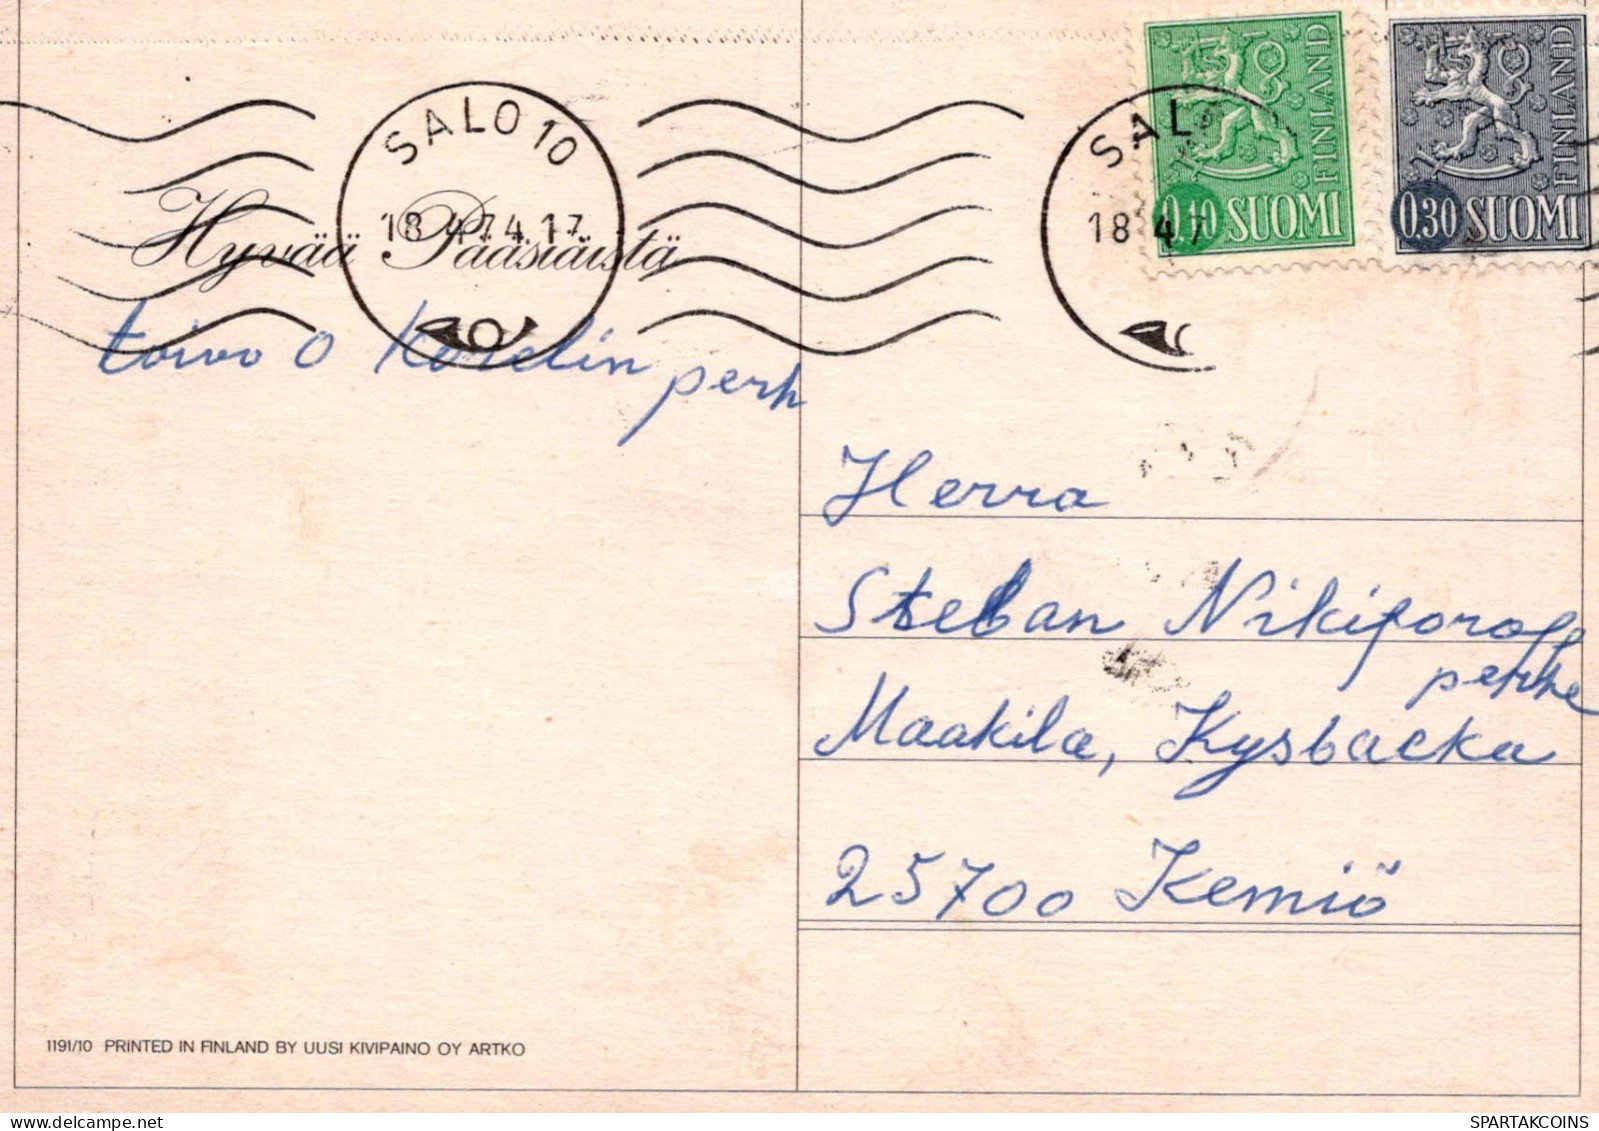 SALO 10
18.4.74.17
Hyvää Pääsiäistä
toivo O Korelin perh
SAL
18 4 7
FINLAND
0,10 SUOMI
FINLAND
0,30 SUOMI
Herra
Steban Nikiforoff
perhe
Maakila, Kysbacka
25700 Kemiö
1191/10 PRINTED IN FINLAND BY UUSI KIVIPAINO OY ARTKO
delcampe.net
SPARTAKCOINS